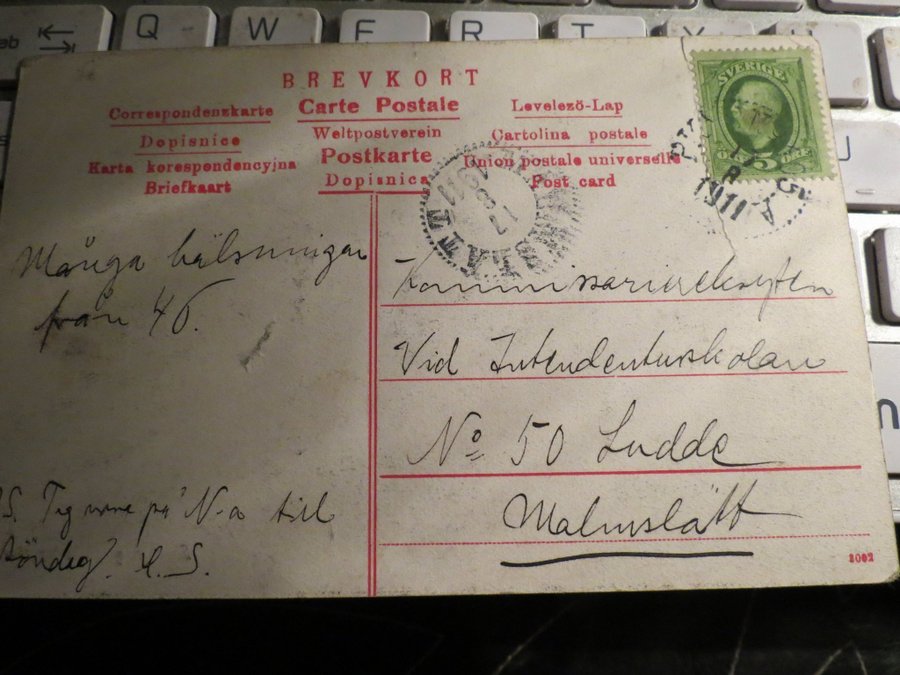 BREVKORT
Correspondenzkarte Carte Postale Levelező-Lap
Dopisnice Weltpostverein Cartolina postale
Karta korespondencyjna Postkarte Union postale universelle
Briefkaart Dopisnica Post card
SVERIGE
5 ÖRE
1911
MALMSLÄTT
1911
Många hälsningar
från 46.
Kommissarieeleven
Vid Intendenturskolan
No 50 Ludde
Malmslätt
på N-a till
Söndag. S.
3002
Q W E R T